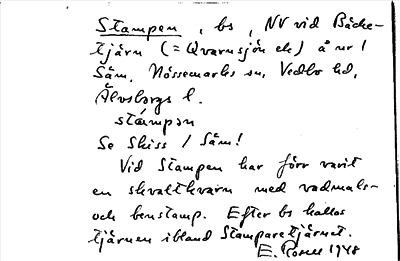 Stampen, bs, NV vid Bäcke-
tjärn (= Qvarnsjön ek) å nr 1
Säm, Nössemarks sn, Vedbo hd,
Älvsborgs l.
stámpən
Se Skiss 1 Säm!
Vid Stampen har förr varit
en skvaltkvarn med vadmals-
och benstamp. Efter bs kallas
tjärnen ibland Stamparetjärnet.
E. Rosell 1948